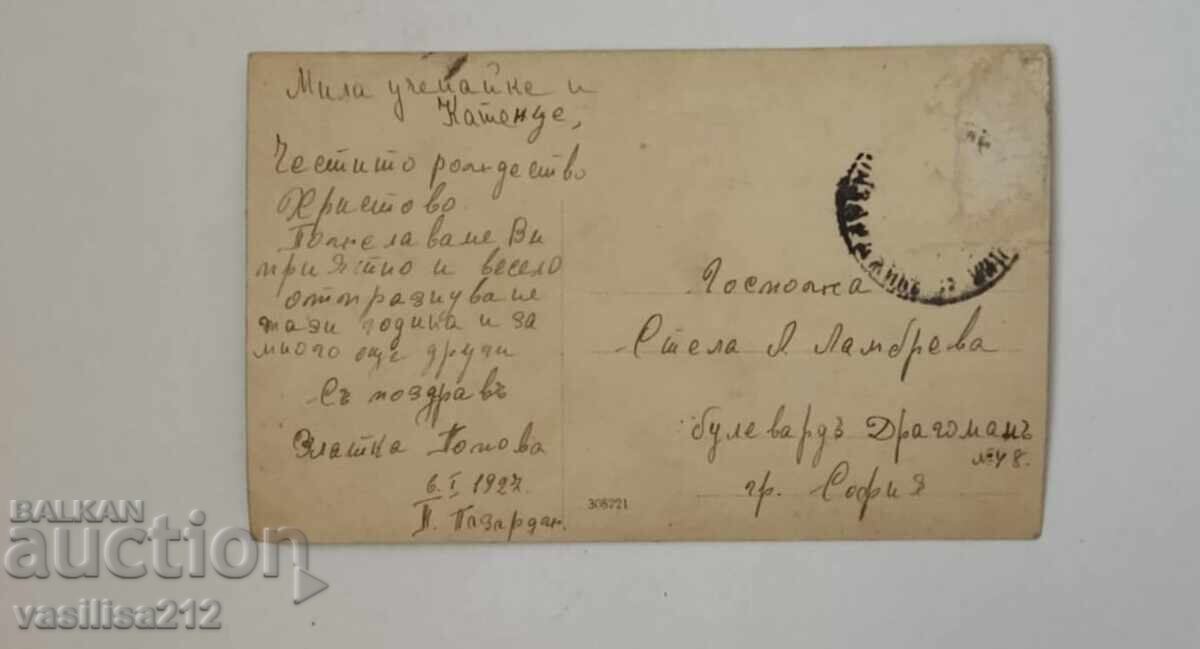 Мила учепайке и
Катенце,
Честито рождество
Христово.
Пожелаваме Ви
приятно и весело
отпразнуване
тази година и за
много още други
Съ поздравъ
Златка Попова
6.I 1927.
Т. Пазардж.
Госпожа
Стела Л. Ламбрева
булевардъ Драгоманъ
№48.
гр. София
308721
BALKAN
auction
vasilisa212